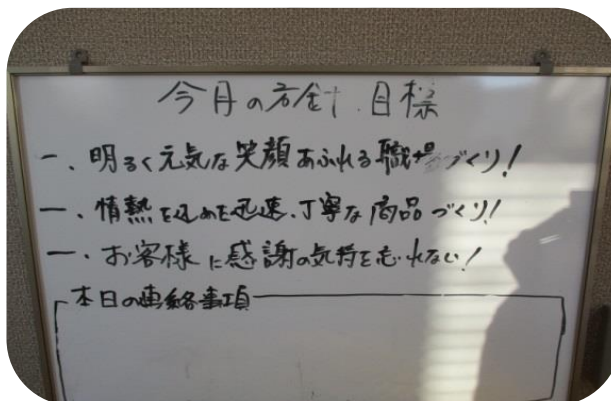 今月の方針.目標
一、明るく元気な笑顔あふれる職場づくり!
一、情熱を込めを迅速、丁寧な商品づくり!
一、お客様に感謝の気持を忘れない!
本日の連絡事項